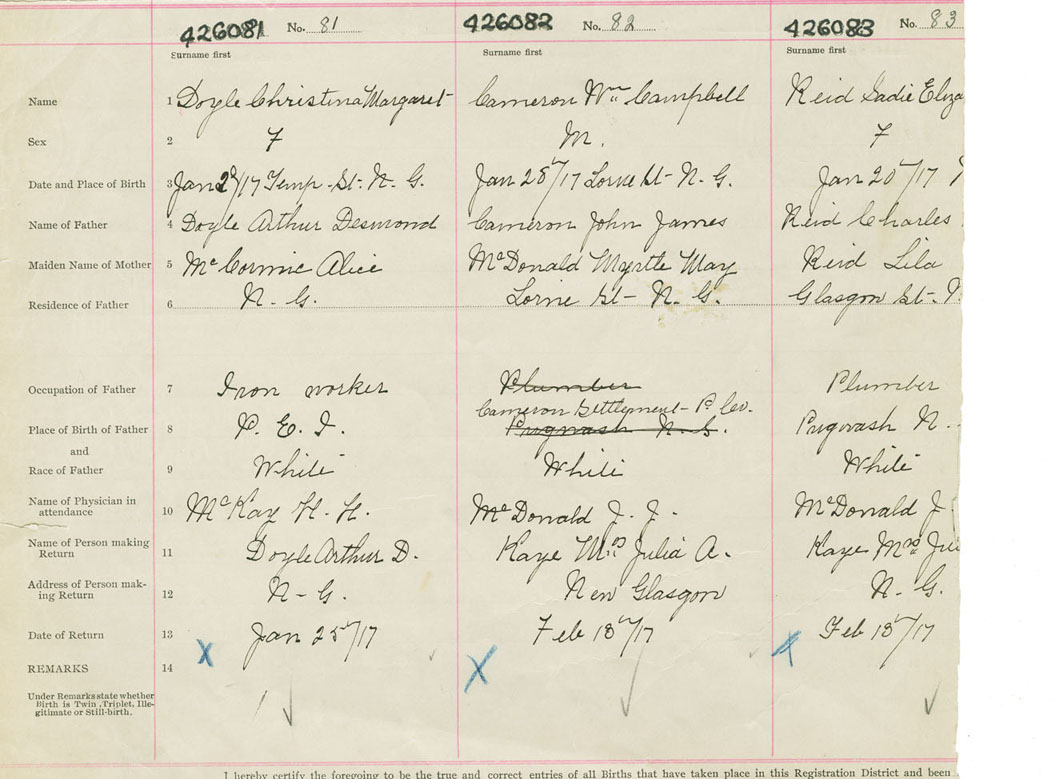 426081 No. 81 426082 No. 82 426083 No. 83
Surname first Surname first Surname first
Name 1 Doyle Christina Margaret Cameron Wm Campbell Reid Sadie
Sex 2 F M. F
Date and Place of Birth 3 Jan /17 Temp. St. N. G. Jan 28/17 Lorne St- N. G. Jan 20/17
Name of Father 4 Doyle Arthur Desmond Cameron John James Reid Charles
Maiden Name of Mother 5 McCormic Alice McDonald Myrtle May Reid Lila
Residence of Father 6 N. G. Lorne St- N. G. Glasgow St-
Occupation of Father 7 Iron worker Plumber Plumber
Cameron Settlement- P. Co.
Place of Birth of Father 8 P. E. I. Pugwash N. S. Pugwash N.
and
Race of Father 9 White White White
Name of Physician in
attendance 10 McKay H. H. McDonald J. J. McDonald J
Name of Person making
Return 11 Doyle Arthur D. Kaye Mrs Julia A. Kaye Mrs
Address of Person mak-
ing Return 12 N-G. New Glasgow N. G.
Date of Return 13 Jan 25/17 Feb 18/17 Feb 18/17
REMARKS 14 X X X
Under Remarks state whether
Birth is Twin, Triplet, Ille-
gitimate or Still-birth.
I hereby certify the foregoing to be the true and correct entries of all Births that have taken place in this Registration District and been